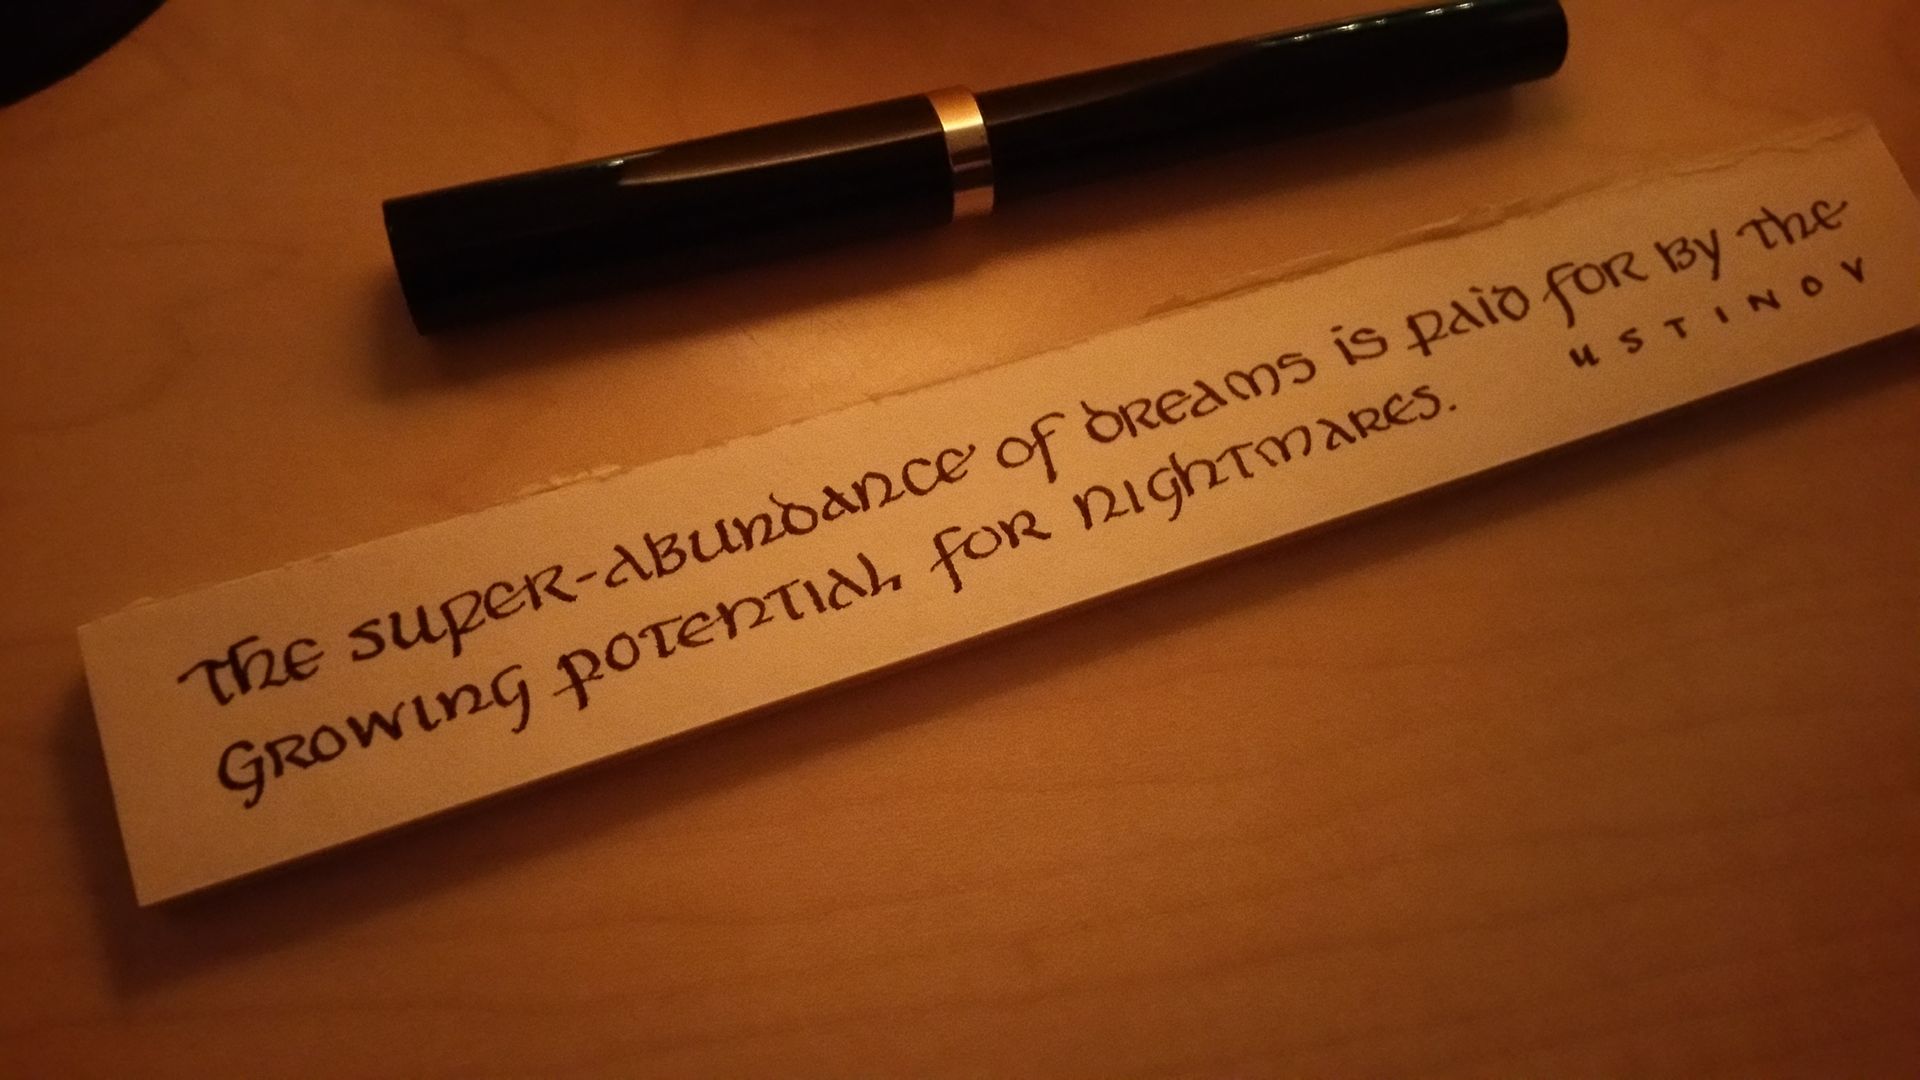 The super-abundance of dreams is paid for by the
growing potential for nightmares.
USTINOV